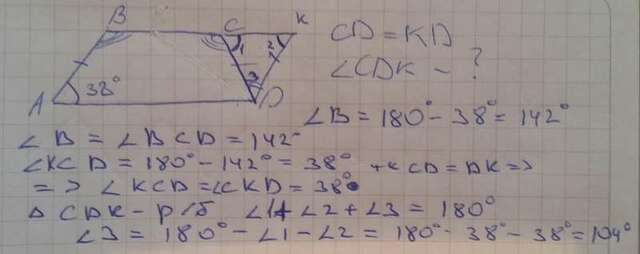 B C K
1 2
3
A 38° D
CD = KD
∠CDK - ?
∠B = 180° - 38° = 142°
∠B = ∠BCD = 142°
∠KCD = 180° - 142° = 38° + к CD = DK =>
=> ∠KCD = ∠CKD = 38°
△ CDK - р/б ∠1+∠2+∠3 = 180°
∠3 = 180° - ∠1 - ∠2 = 180° - 38° - 38° = 104°